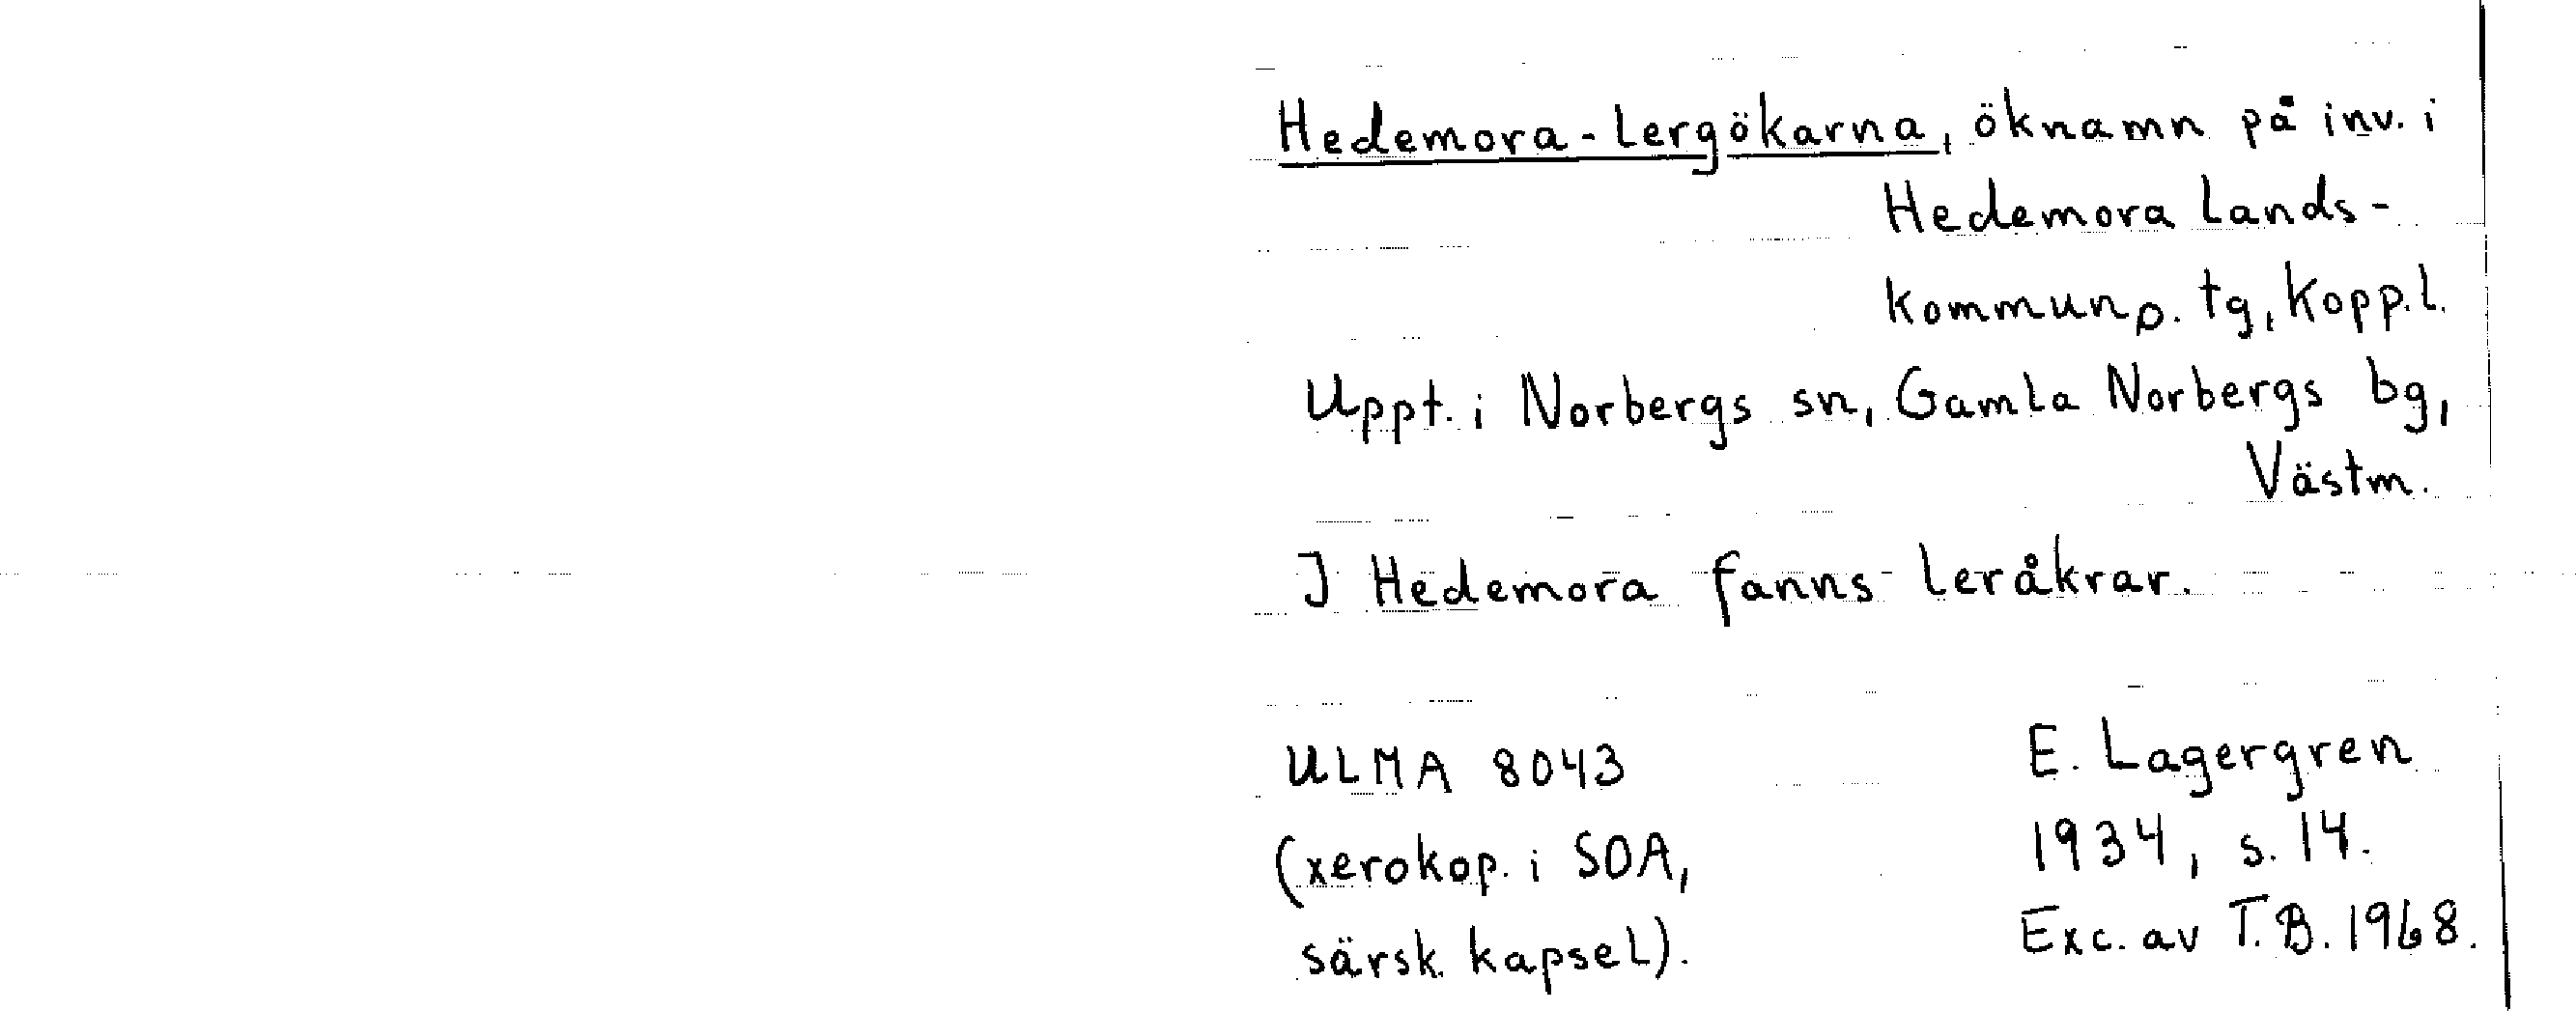 Hedemora-lergökarna, öknamn på inv. i
Hedemora lands-
kommun p. tg, Kopp.l.
Uppt. i Norbergs sn, Gamla Norbergs bg,
Västm.
I Hedemora fanns leråkrar.
ULMA 8043
(xerokop. i SOA,
särsk. kapsel).
E. Lagergren
1934, s. 14.
Exc. av T.B. 1968.